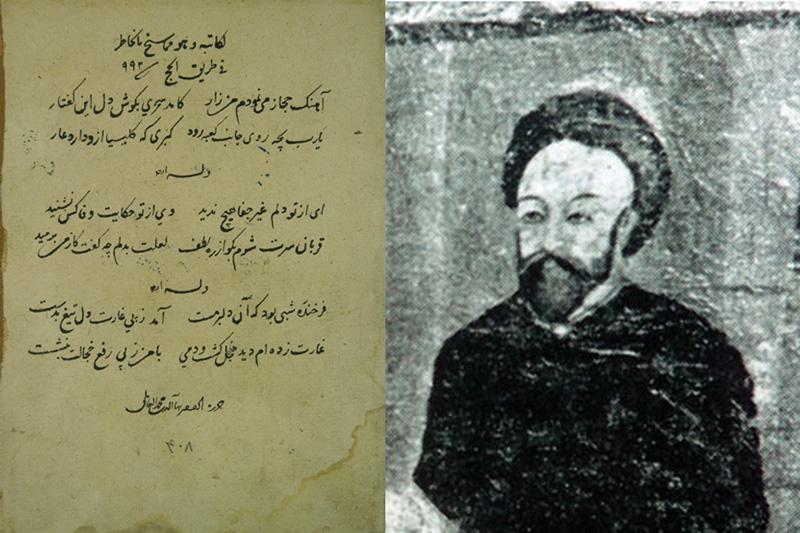 لکاتبه و هو مما سنح بالخاطر
فی طریق الحج سنه ۹۹۲
آهنک حجاز می نمودم من زار کامد سحری بکوش دل این کفتار
یارب بچه روی جانب کعبه رود کبری که کلیسیا ازو دارد عار
وله ایضا
ای از تو دلم غیر جفا هیچ ندید وی از تو حکایت وفا کس نشنید
قربان سرت شوم بکو از ره لطف لعلت بدلم چه کفت کز من برمید
وله ایضا
فرخنده شبی بود که آن دلبر مست آمد ز پی غارت دل تیغ بدست
غارت زده ام دید خجل کشت دمی با من ز پی رفع خجالت بنشست
حرره بهاء الدین محمد العاملی
۴۰۸